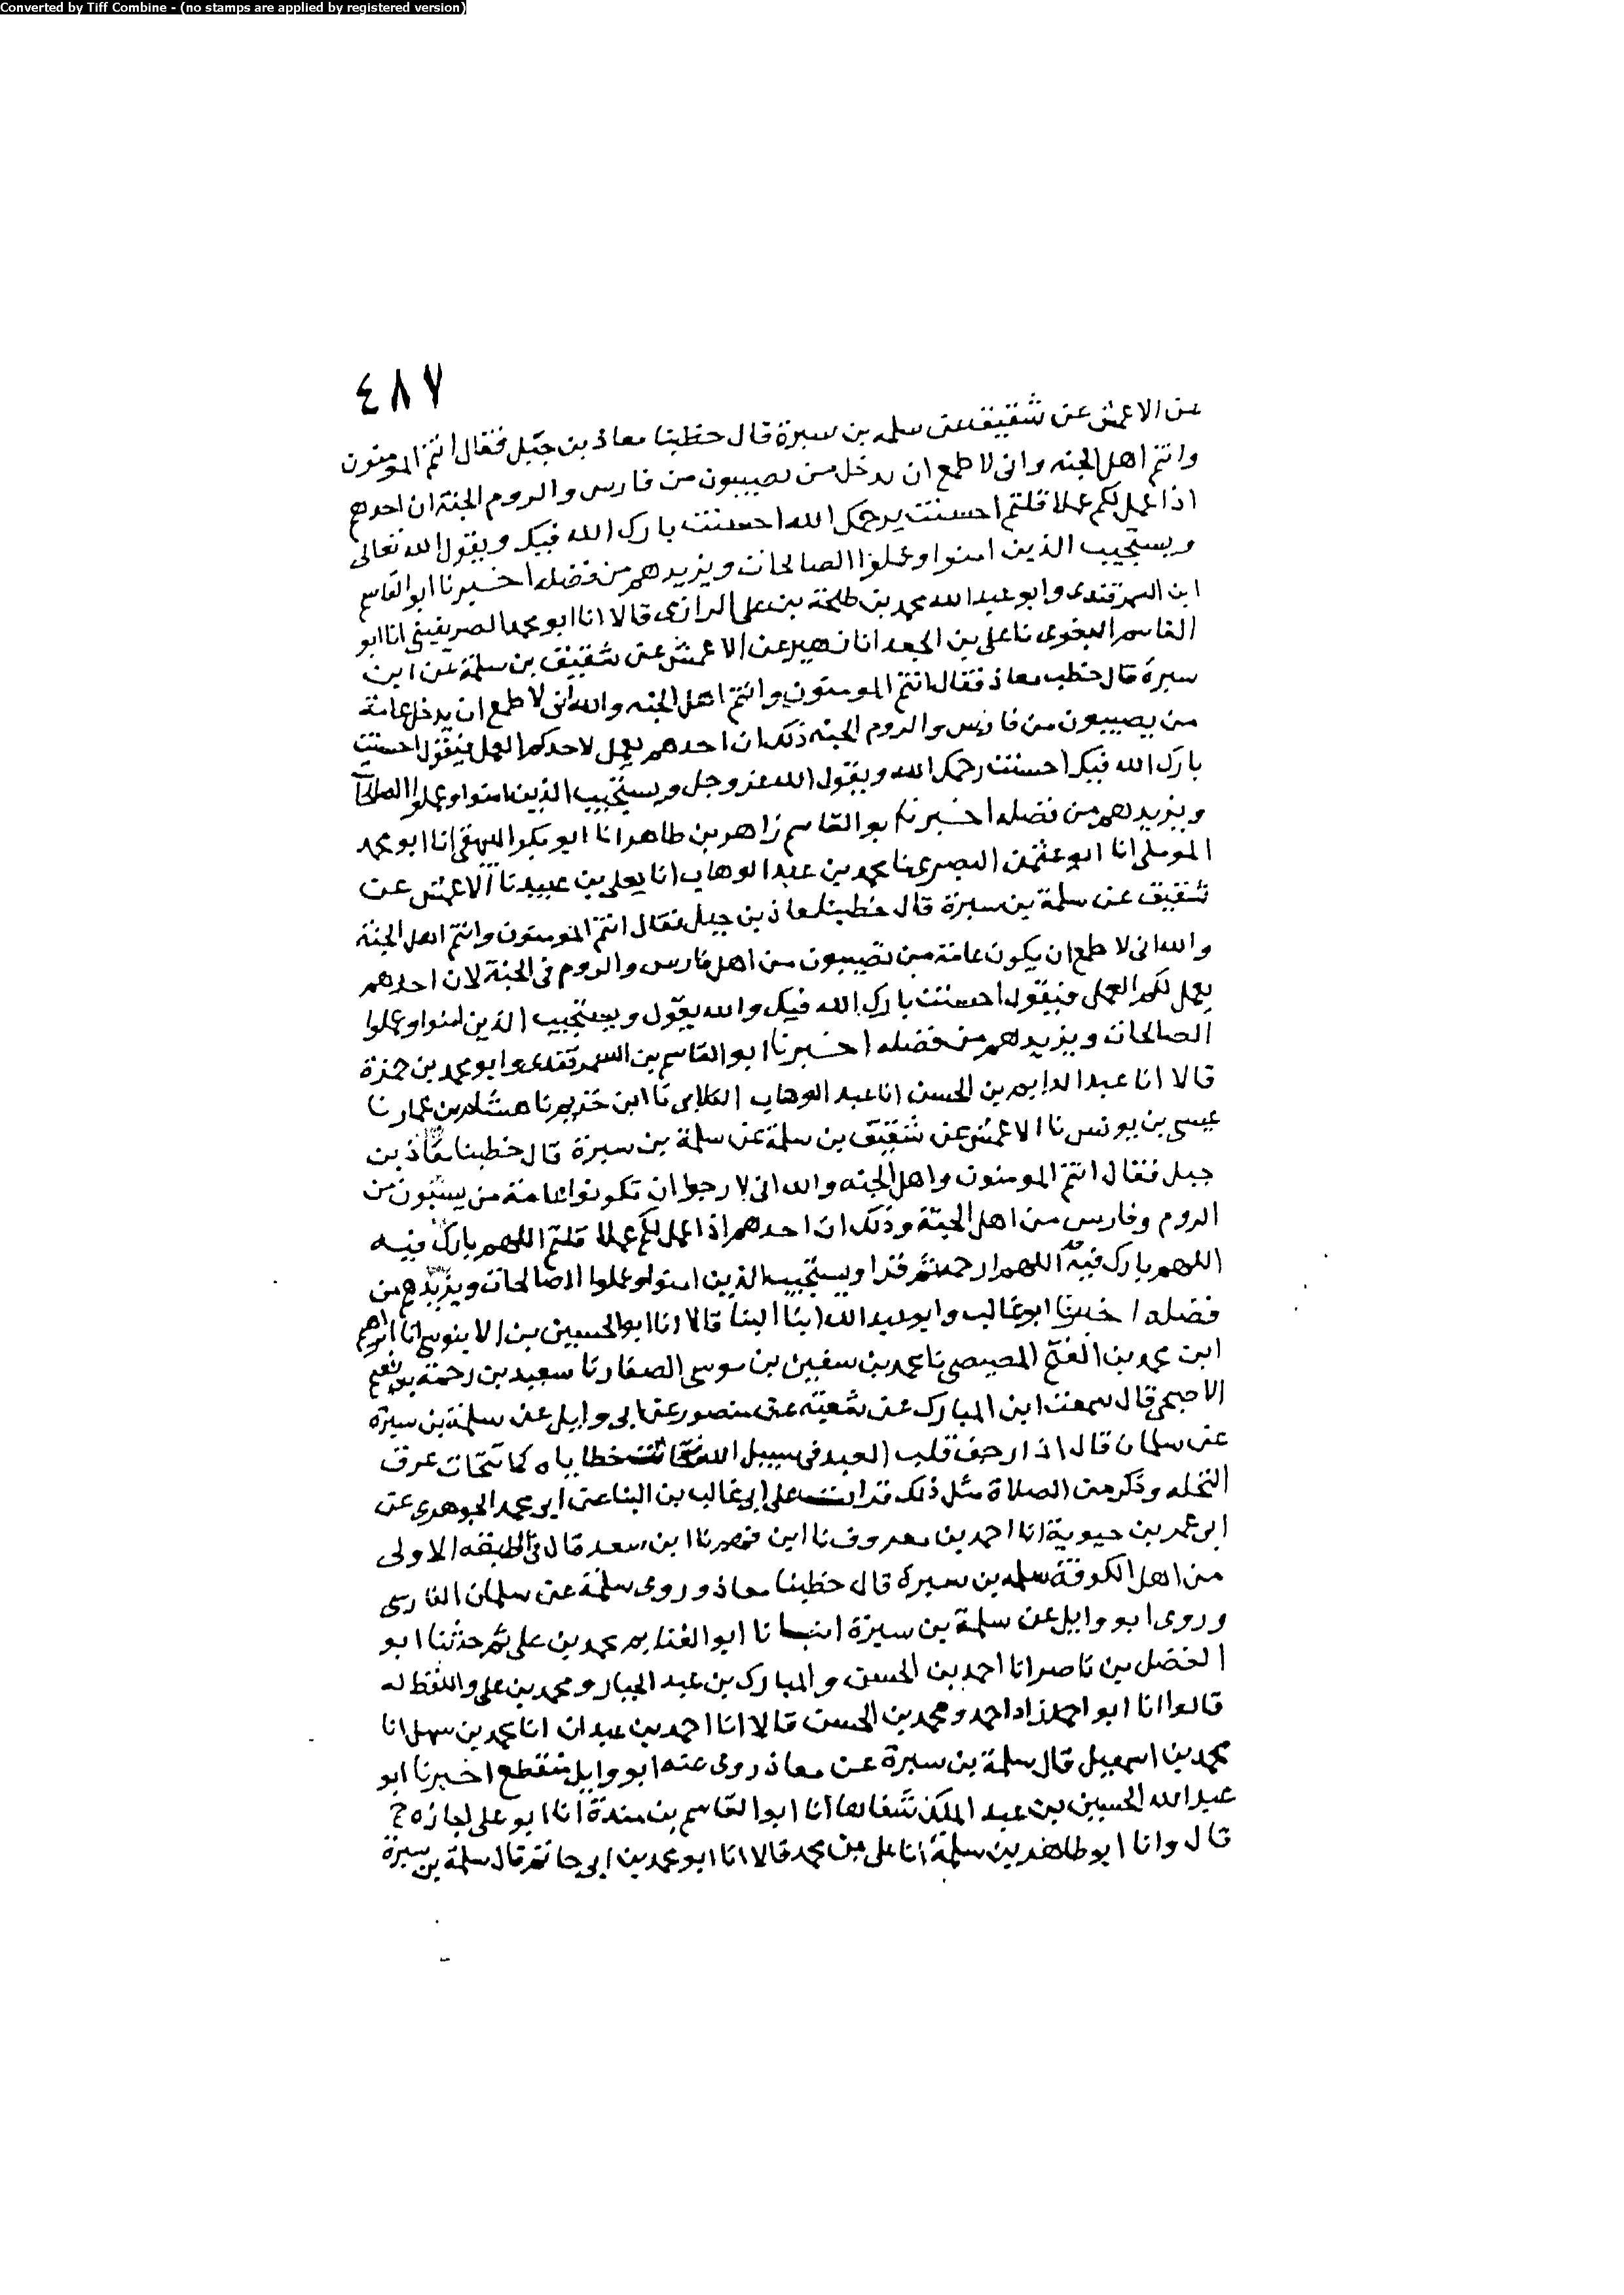 Converted by Tiff Combine - (no stamps are applied by registered version)
٤٨٧
عن الاعمش عن شقيق عن سلمه بن سبرة قال خطبنا معاذ بن جبل فقال انتم المومنون
وانتم اهل الجنه وانى لاطمع ان يدخل من تصيبون من فارس والروم الجنة ان احدهم
اذا عمل لكم عملا قلتم احسنت يرحمك الله احسنت بارك الله فيك ويقول الله تعالى
ويستجيب الذين امنوا وعملوا الصالحات ويزيدهم من فضله اخبرنا ابو القاسم
ابن السمرقندى وابو عبد الله محمد بن طلحة بن على الرازى قالا انا ابو محمد الصريفينى انا ابو
القاسم البغوى نا على بن الجعد انا زهير عن الاعمش عن شقيق بن سلمة عن ابن
سبرة قال خطب معاذ فقال انتم المومنون وانتم اهل الجنه والله انى لاطمع ان يدخل عامة
من يصيبون من فارس والروم الجنه ذلك ان احدهم يعمل لاحدكم العمل فيقول احسنت
بارك الله فيك احسنت رحمك الله ويقول الله عز وجل ويستجيب الذين امنوا وعملوا الصالحات
ويزيدهم من فضله اخبرنا ابو القاسم زاهر بن طاهر انا ابو بكر البيهقى انا ابو محمد
الموملى انا ابو عثمن البصرى نا محمد بن عبد الوهاب انا يعلى بن عبيد نا الاعمش عن
شقيق عن سلمة بن سبرة قال خطبنا معاذ بن جبل فقال انتم المومنون وانتم اهل الجنة
والله انى لاطمع ان يكون عامة من تصيبون من اهل فارس والروم فى الجنة لان احدهم
يعمل لكم العمل فيقول احسنت بارك الله فيك والله يقول ويستجيب الذين امنوا وعملوا
الصالحات ويزيدهم من فضله اخبرنا ابو القاسم بن السمرقندى وابو محمد بن حمزة
قالا انا عبد الدايم بن الحسن انا عبد الوهاب الكلابى نا ابن خزيم نا هشام بن عمار نا
عيسى بن يونس نا الاعمش عن شقيق بن سلمة عن سلمة بن سبرة قال خطبنا معاذ بن
جبل فقال انتم المومنون واهل الجنه والله انى لارجوا ان تكونوا عامة من يسبون من
الروم وفارس من اهل الجنة وذلك ان احدهم اذا عمل لكم عملا قلتم اللهم بارك فيه
اللهم بارك فيه اللهم ارحمه ثم قرا ويستجيب الذين امنوا وعملوا الصالحات ويزيدهم من
فضله اخبرنا ابو غالب وابو عبد الله ابنا البنا قالا انا ابو الحسين بن الابنوسى انا ابراهيم
ابن محمد بن الفتح المصيصى نا محمد بن سفين بن موسى الصفار نا سعيد بن رحمة بن نعيم
الاصبحى قال سمعت ابن المبارك عن شعبة عن منصور عن ابى وايل عن سلمة بن سبرة
عن سلمان قال اذا رجف قلب العبد فى سبيل الله تحاتت خطاياه كما تتحات عرف
النخله وذكر من الصلاة مثل ذلك قرات على ابى غالب بن البنا عن ابى محمد الجوهرى عن
ابى عمر بن حيوية انا احمد بن معروف نا ابن فهم نا ابن سعد قال فى الطبقه الاولى
من اهل الكوفة سلمه بن سبرة قال خطبنا معاذ وروى سلمة عن سلمان الفارسى
وروى ابو وايل عن سلمة بن سبرة انبانا ابو الغنايم محمد بن على ثم حدثنا ابو
الفضل بن ناصر انا احمد بن الحسن والمبارك بن عبد الجبار ومحمد بن على واللفظ له
قالوا انا ابو احمد زاد احمد ومحمد بن الحسن قالا انا احمد بن عبدان انا محمد بن سهل انا
محمد بن اسمعيل قال سلمة بن سبرة عن معاذ روى عنه ابو وايل منقطع اخبرنا ابو
عبد الله الحسين بن عبد الملك شفاها انا ابو القاسم بن مندة انا ابو على اجازه ح
قال وانا ابو طاهر بن سلمة انا على بن محمد قالا انا ابو محمد بن ابى حاتم قال سلمة بن سبرة